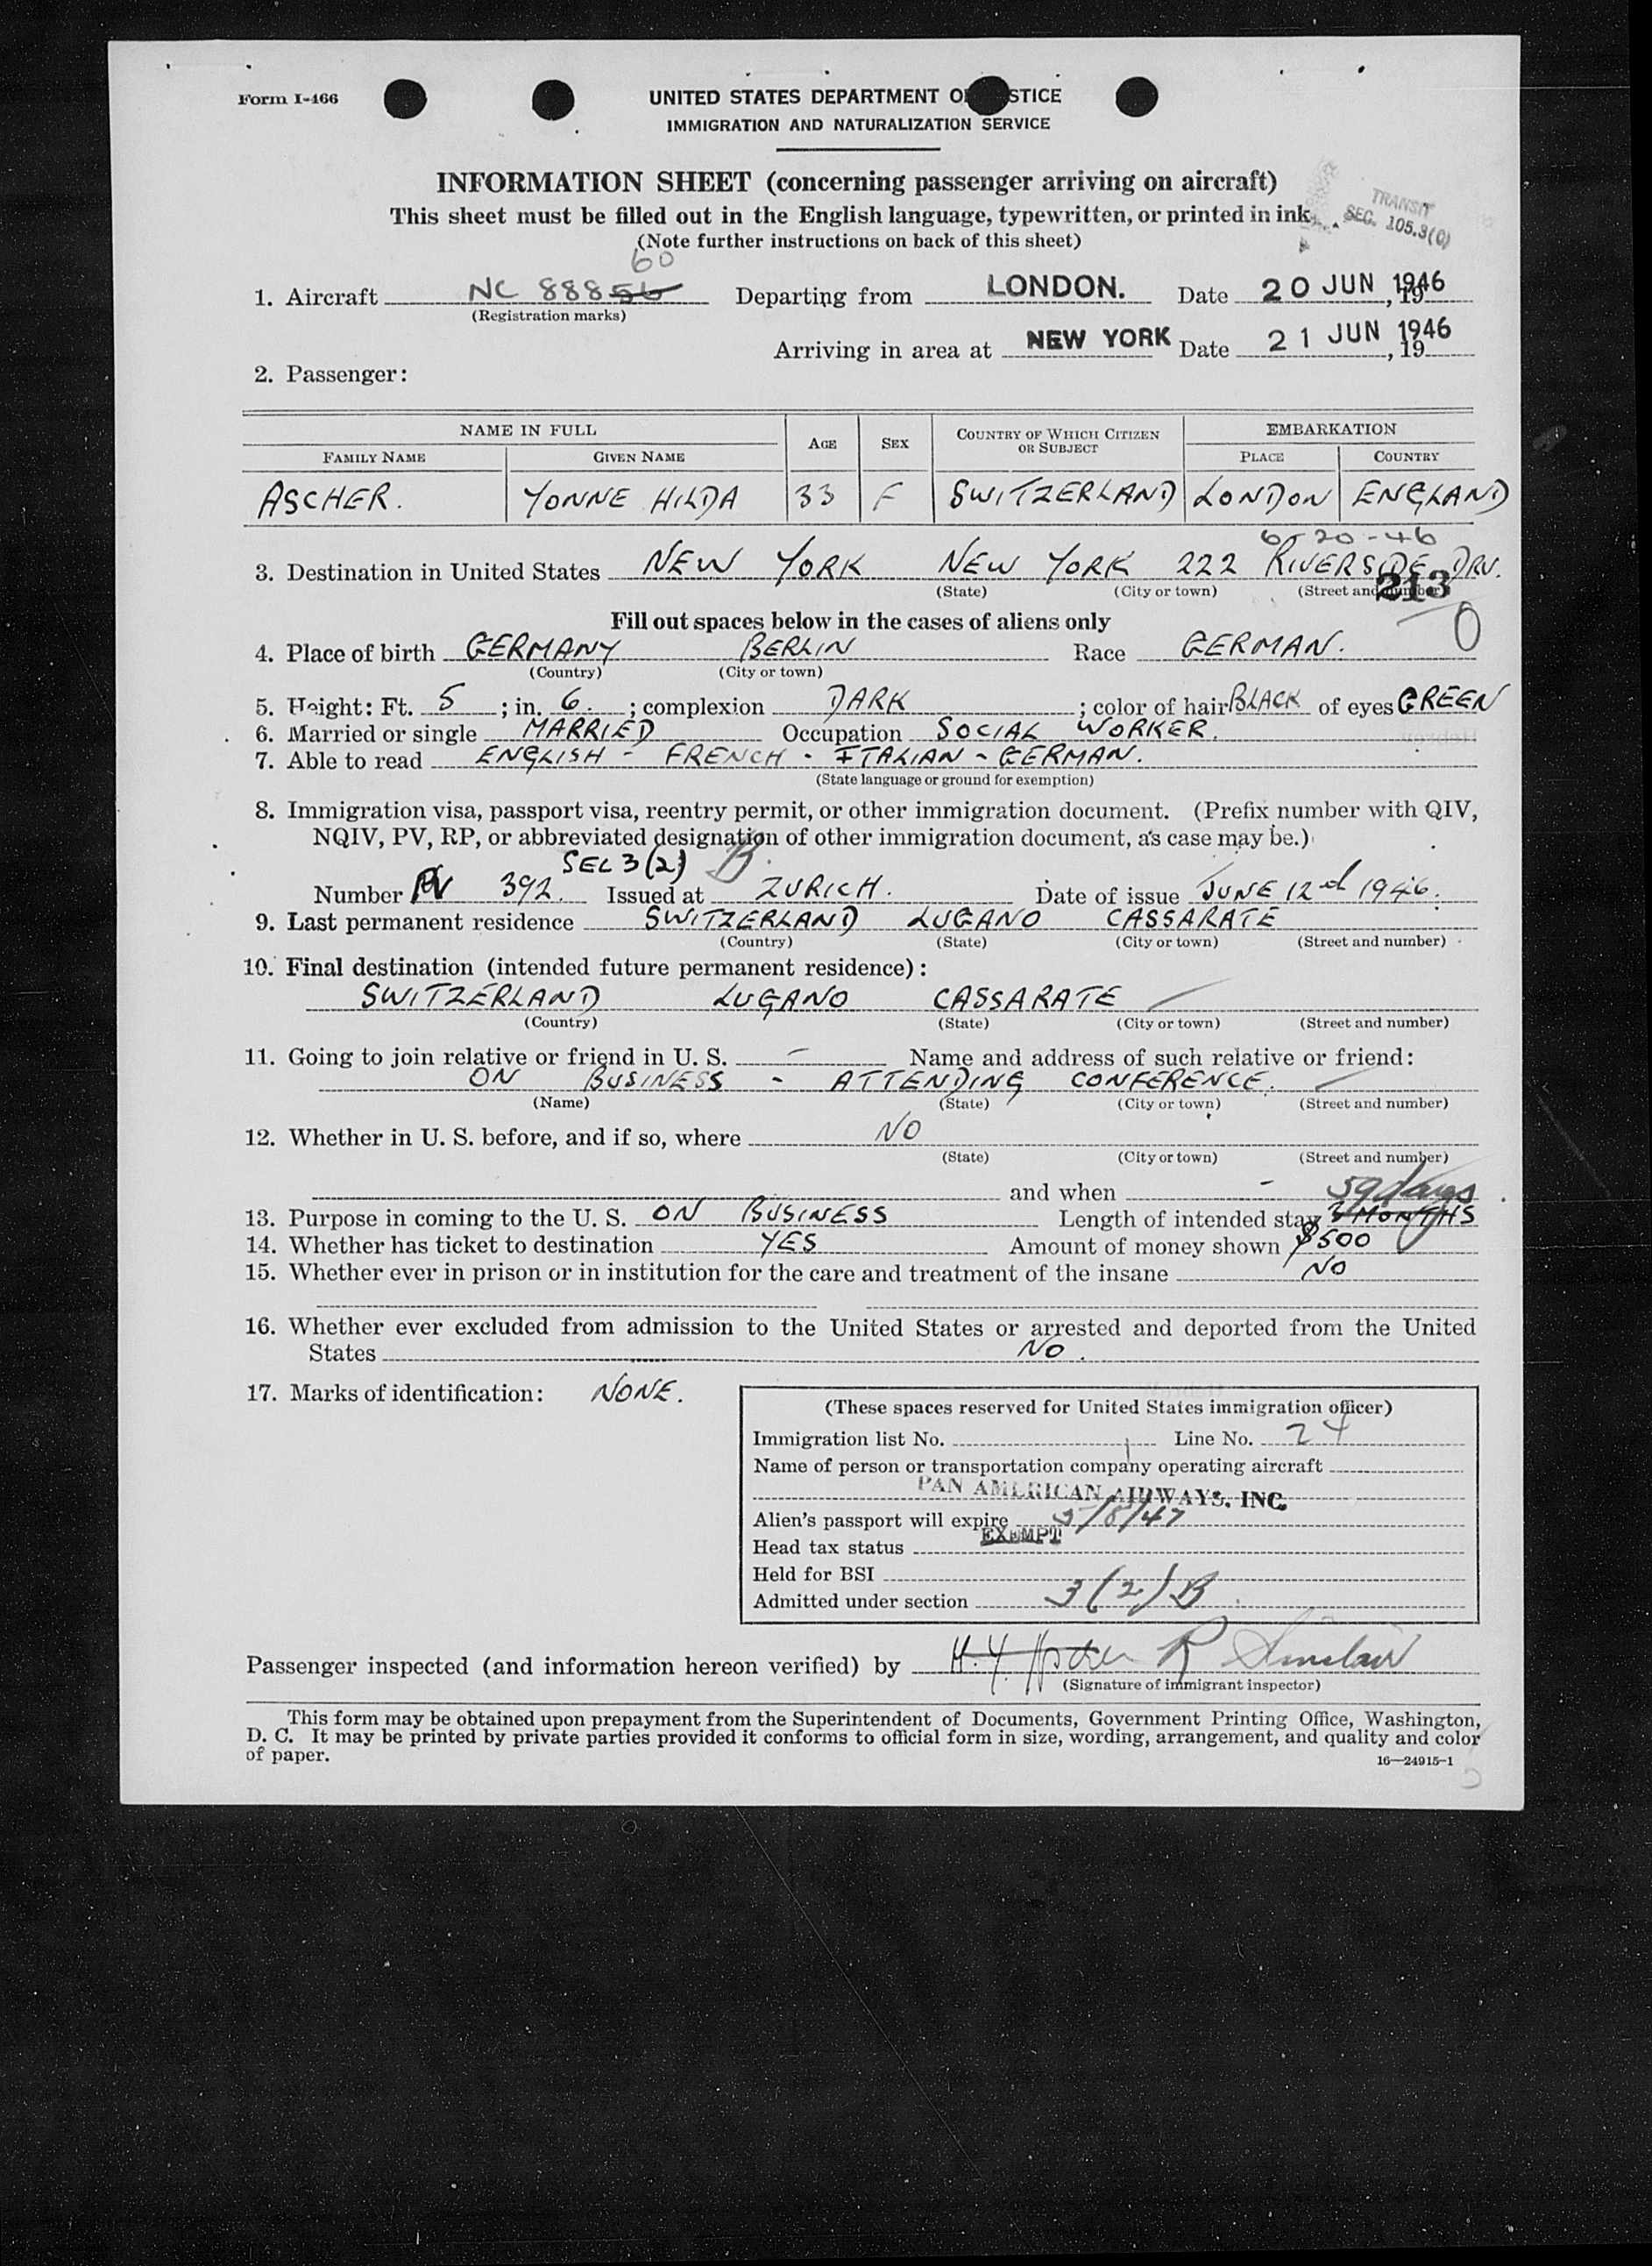 Form I-466
UNITED STATES DEPARTMENT O STICE
IMMIGRATION AND NATURALIZATION SERVICE
INFORMATION SHEET (concerning passenger arriving on aircraft)
This sheet must be filled out in the English language, typewritten, or printed in ink.
TRANSIT
SEC. 105.3(C)
(Note further instructions on back of this sheet)
60
1. Aircraft NC 88856 Departing from LONDON. Date 20 JUN 1946, 19
(Registration marks)
Arriving in area at NEW YORK Date 21 JUN 1946, 19
2. Passenger:
NAME IN FULL AGE SEX COUNTRY OF WHICH CITIZEN OR SUBJECT EMBARKATION
FAMILY NAME GIVEN NAME PLACE COUNTRY
ASCHER. YONNE HILDA 33 F SWITZERLAND LONDON ENGLAND
6-20-46
3. Destination in United States NEW YORK NEW YORK 222 RIVERSIDE DRV.
(State) (City or town) (Street and number)
213
0
Fill out spaces below in the cases of aliens only
4. Place of birth GERMANY BERLIN Race GERMAN.
(Country) (City or town)
5. Height: Ft. 5; in. 6.; complexion DARK; color of hair BLACK of eyes GREEN
6. Married or single MARRIED Occupation SOCIAL WORKER.
7. Able to read ENGLISH - FRENCH - ITALIAN - GERMAN.
(State language or ground for exemption)
8. Immigration visa, passport visa, reentry permit, or other immigration document. (Prefix number with QIV,
NQIV, PV, RP, or abbreviated designation of other immigration document, as case may be.)
SEC 3(2) B.
Number PV 392. Issued at ZURICH. Date of issue JUNE 12d 1946.
9. Last permanent residence SWITZERLAND LUGANO CASSARATE
(Country) (State) (City or town) (Street and number)
10. Final destination (intended future permanent residence):
SWITZERLAND LUGANO CASSARATE
(Country) (State) (City or town) (Street and number)
11. Going to join relative or friend in U. S. - Name and address of such relative or friend:
ON BUSINESS - ATTENDING CONFERENCE.
(Name) (State) (City or town) (Street and number)
12. Whether in U. S. before, and if so, where NO
(State) (City or town) (Street and number)
and when - 59 days
13. Purpose in coming to the U. S. ON BUSINESS Length of intended stay 3 MONTHS
14. Whether has ticket to destination YES Amount of money shown $500
15. Whether ever in prison or in institution for the care and treatment of the insane NO
16. Whether ever excluded from admission to the United States or arrested and deported from the United
States NO.
17. Marks of identification: NONE.
(These spaces reserved for United States immigration officer)
Immigration list No. Line No. 24
Name of person or transportation company operating aircraft
PAN AMERICAN AIRWAYS, INC.
Alien's passport will expire 5/8/47
Head tax status EXEMPT
Held for BSI
Admitted under section 3(2)B
Passenger inspected (and information hereon verified) by R Sinclair
(Signature of immigrant inspector)
This form may be obtained upon prepayment from the Superintendent of Documents, Government Printing Office, Washington,
D. C. It may be printed by private parties provided it conforms to official form in size, wording, arrangement, and quality and color
of paper.
16—24915-1